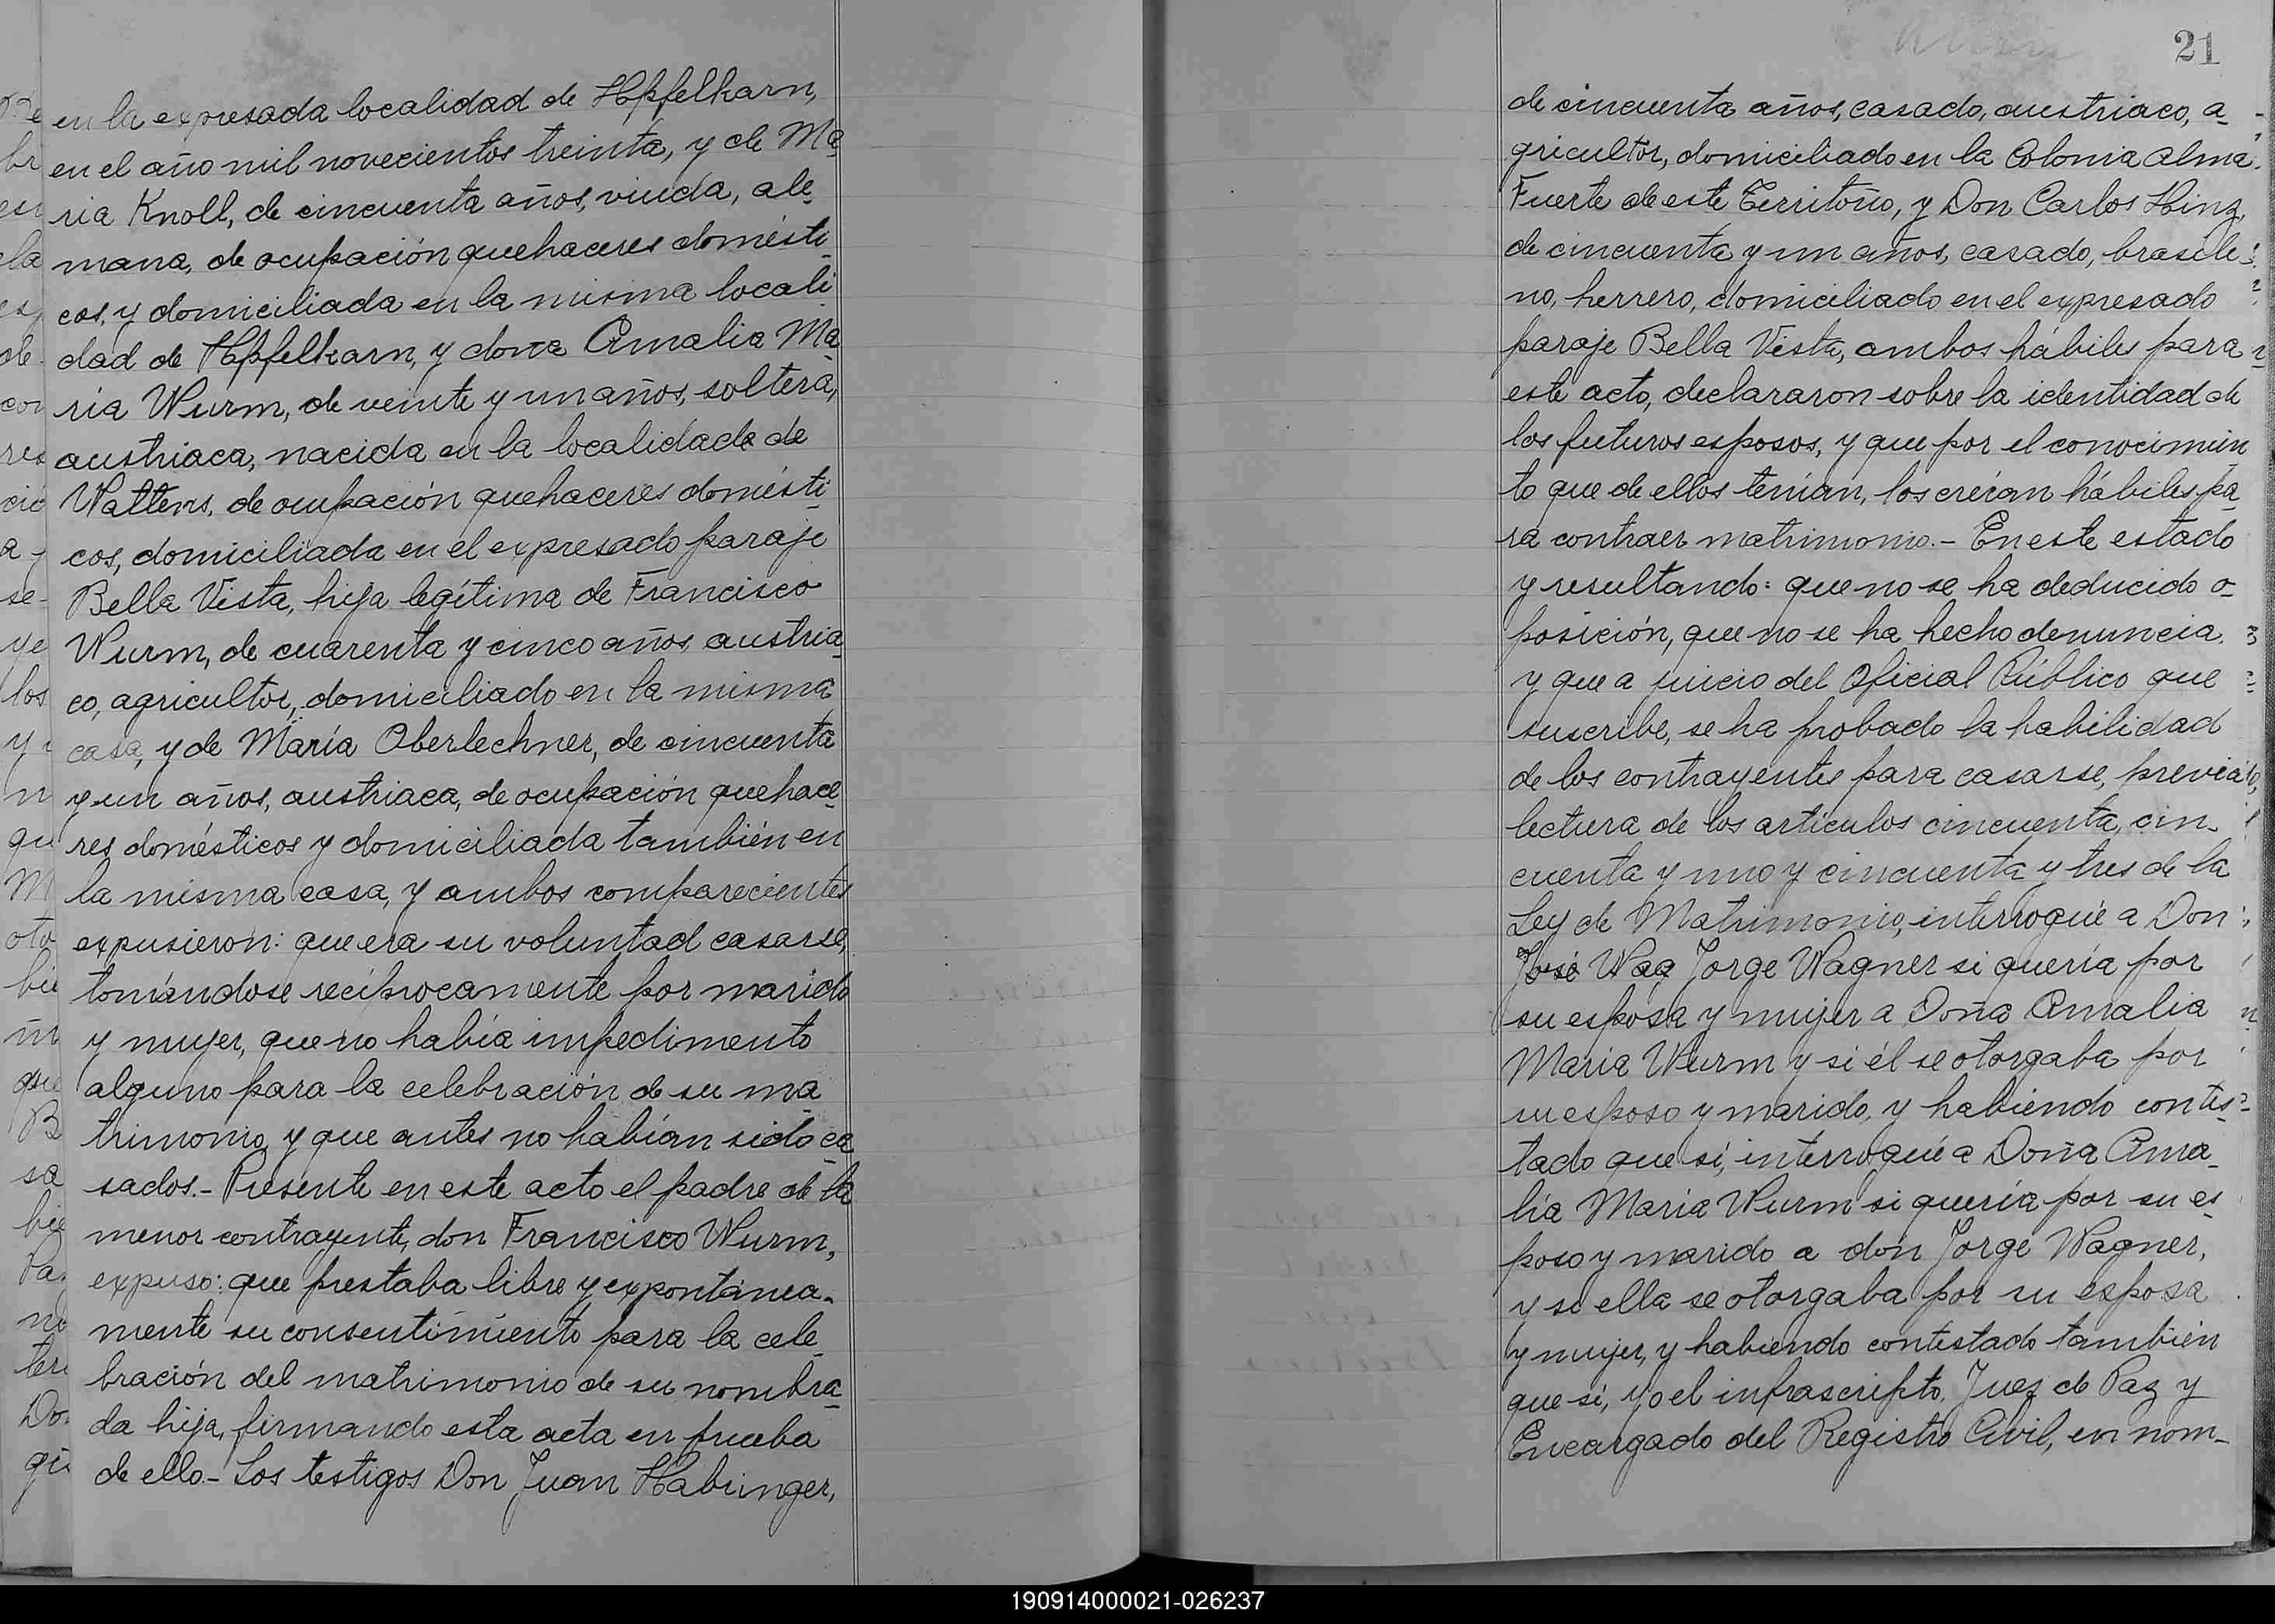 en la expresada localidad de Hopfelkarn,
en el año mil novecientos treinta, y de Ma_
ria Knoll, de cincuenta años, viuda, ale_
mana, de ocupación quehaceres domésti_
cos, y domiciliada en la misma locali_
dad de Hopfelkarn, y dona Amalia Ma_
ria Wurm, de veinte y un años, soltera,
austriaca, nacida en la localidade de
Wattens, de ocupación quehaceres domésti_
cos, domiciliada en el expresado paraje
Bella Vista, hija legítima de Francisco
Wurm, de cuarenta y cinco años, austria_
co, agricultor, domiciliado en la misma
casa, y de María Oberlechner, de cincuenta
y un años, austriaca, de ocupación quehace_
res domésticos y domiciliada también en
la misma casa, y ambos comparecientes
expusieron: que era su voluntad casarse,
tomándose recíprocamente por marido
y mujer, que no había impedimento
alguno para la celebración de su ma_
trimonio, y que antes no habían sido ca_
sados.- Presente en este acto el padre de la
menor contrayente, don Francisco Wurm,
expuso: que prestaba libre y expontánea-
mente su consentimiento para la cele_
bración del matrimonio de su nombra_
da hija, firmando esta acta en prueba
de ello.- Los testigos Don Juan Habringer,
21
de cincuenta años, casado, austriaco, a_
gricultor, domiciliado en la Colonia Alma
Fuerte de este Territorio, y Don Carlos Hinz,
de cincuenta y un años, casado, brasile_
no, herrero, domiciliado en el expresado
paraje Bella Vista, ambos hábiles para
este acto, declararon sobre la identidad de
los futuros esposos, y que por el conocimien_
to que de ellos tenían, los creían hábiles pa_
ra contraer matrimonio.- En este estado
y resultando: que no se ha deducido o_
posición, que no se ha hecho denuncia,
y que a juicio del Oficial Público que
suscribe, se ha probado la habilidad
de los contrayentes para casarse, previa
lectura de los artículos cincuenta, cin_
cuenta y uno y cincuenta y tres de la
Ley de Matrimonio, interrogué a Don
José Wag Jorge Wagner si quería por
su esposa y mujer a Doña Amalia
Maria Wurm y si él se otorgaba por
su esposo y marido, y habiendo contes_
tado que sí, interrogué a Doña Ama_
lia Maria Wurm si quería por su es_
poso y marido a don Jorge Wagner,
y si ella se otorgaba por su esposa
y mujer, y habiendo contestado también
que sí, yo el infrascripto, Juez de Paz y
Encargado del Registro Civil, en nom_
190914000021-026237